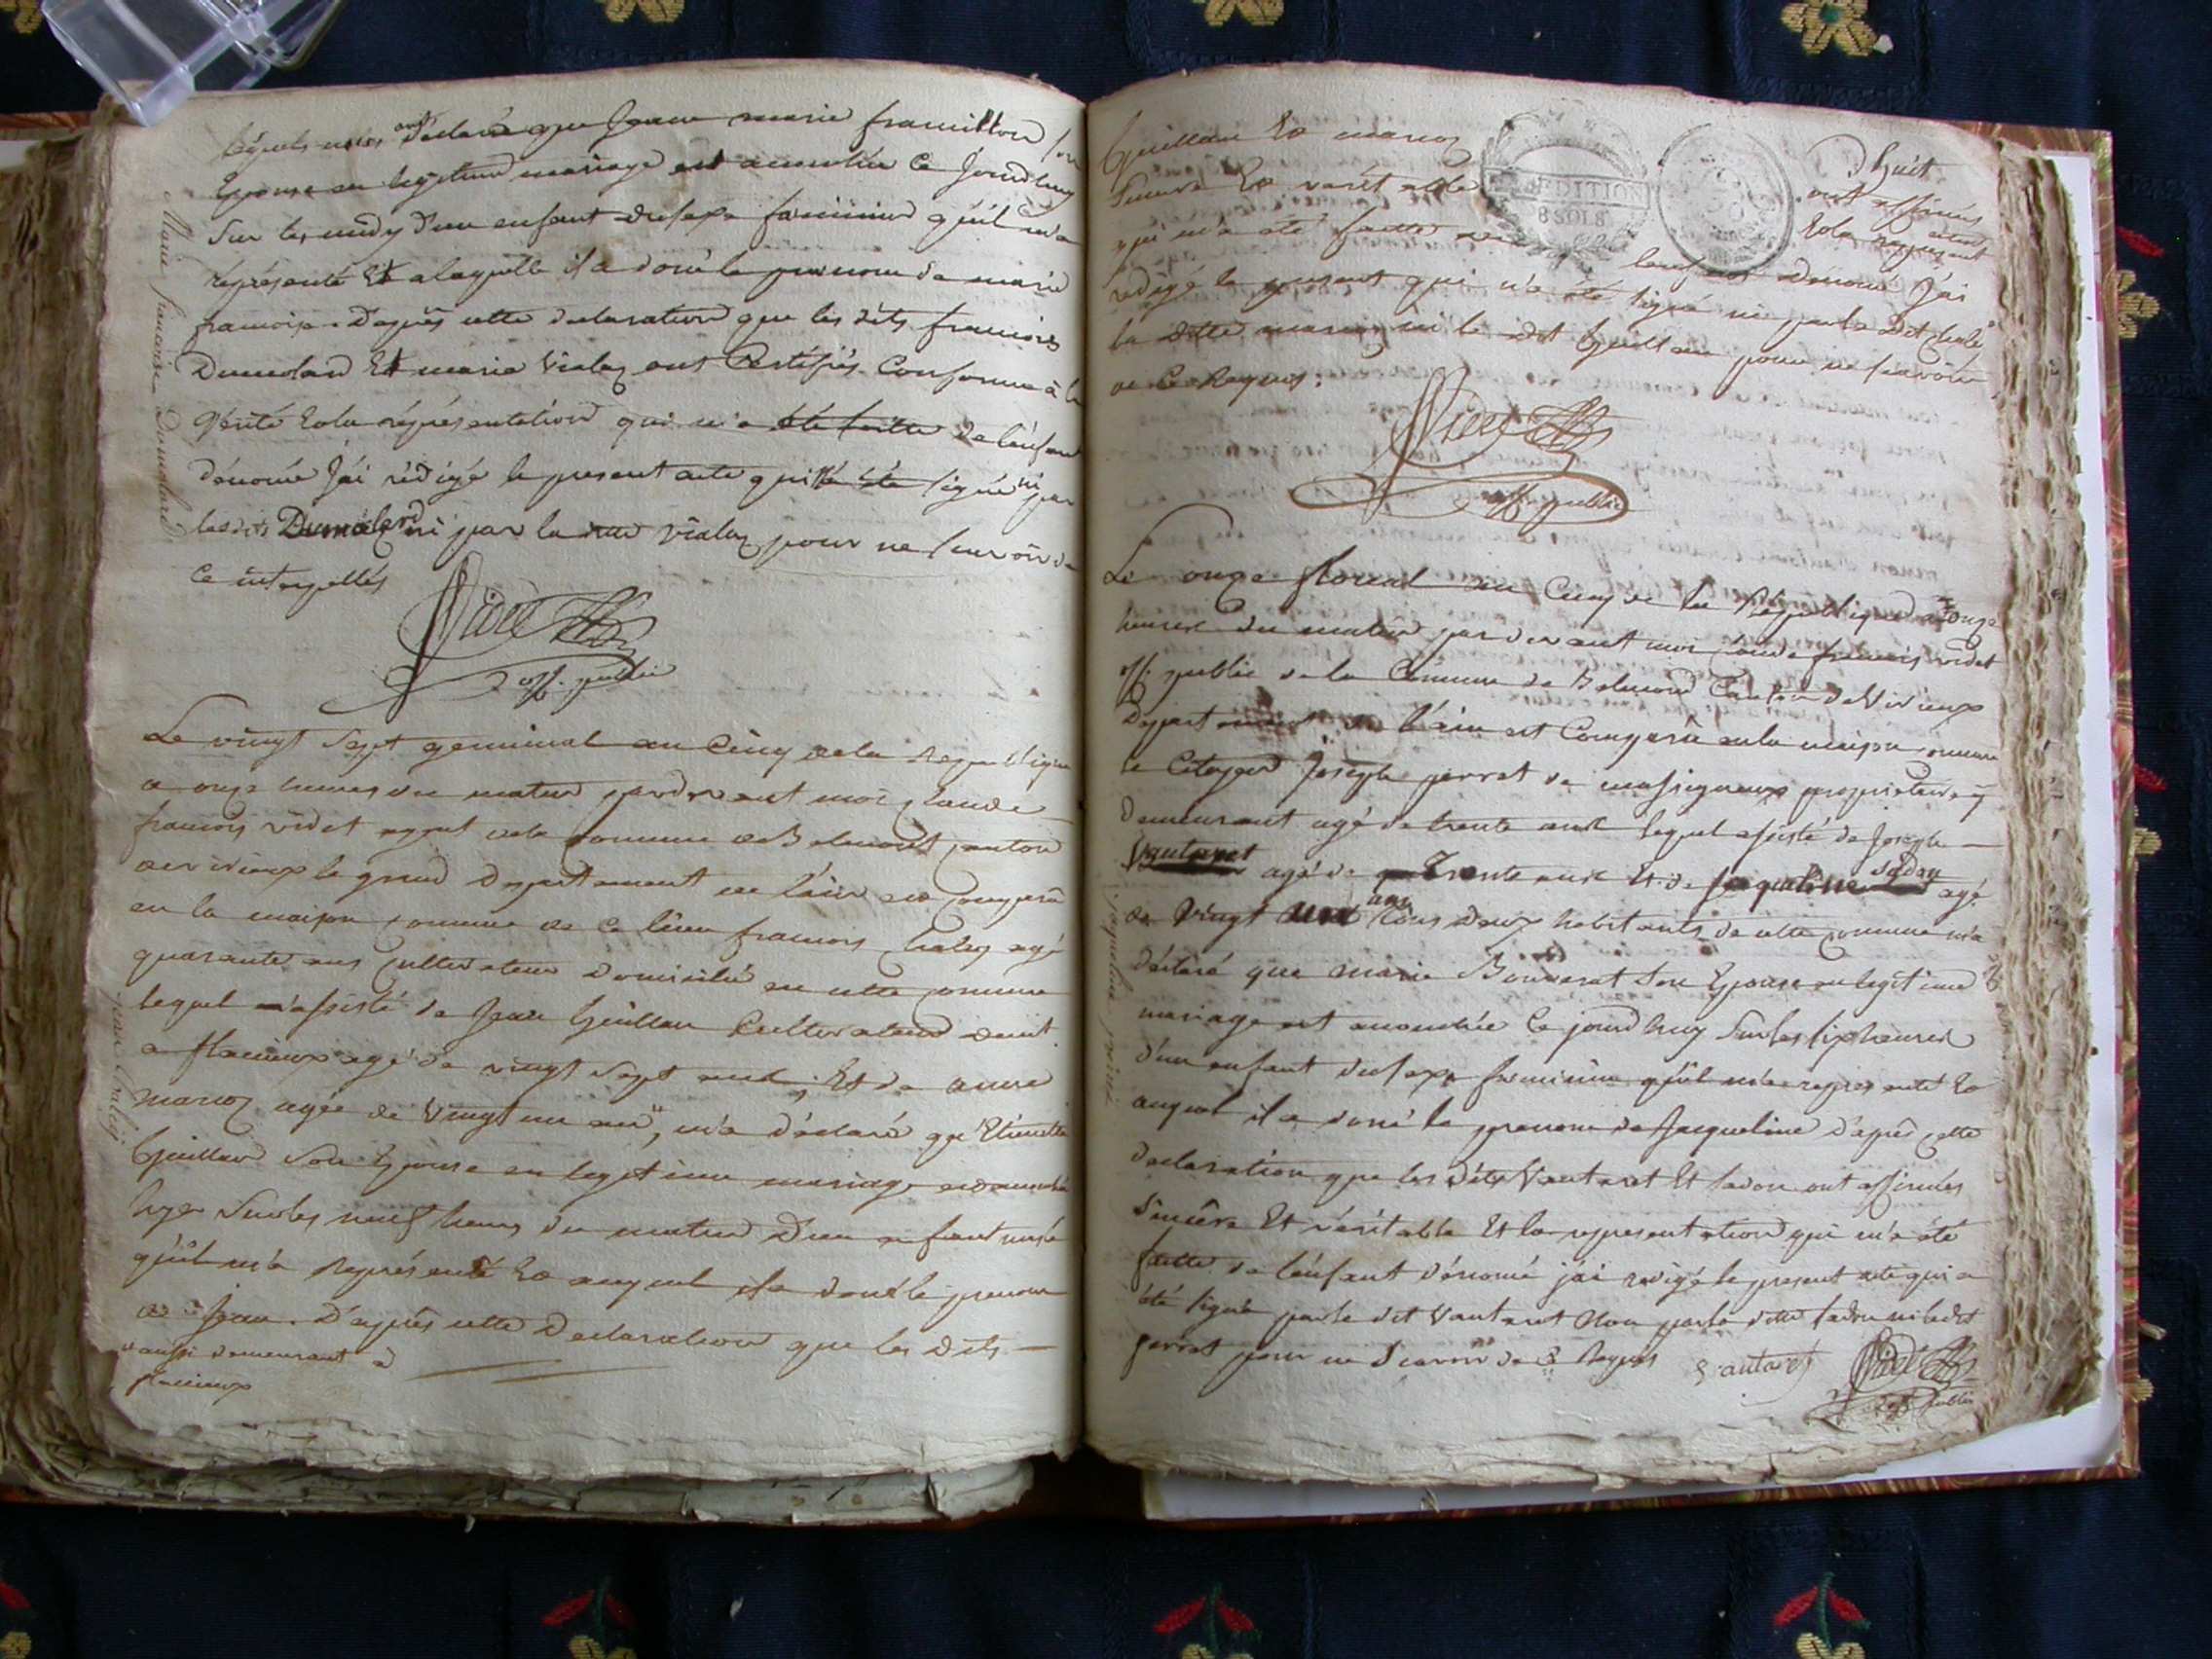 lequels nous ont déclaré que Jeanne marie framillon son
Epouse en legitime mariage est accouchée ce Jourdhuy
sur les midy d'un enfant du sexe feminin qu'il m'a
représenté Et a laquelle il a doné le prenom de marie
francoise. D'après cette declaration que les dits francois
Dumolard Et marie Vialey ont Certifiés Conforme à la
vérité Et la réprésentation qui m'a été faitte de l'enfant
dénomé J'ai rédigé le present acte qui n'a été signé ni par
le dits Dumolard ni par la ditte Vialey pour ne scavoir de
ce interpellés
Marie francoise Dumolard
Videt
off. public
Le vingt sept germinal an Cinq de la Republique
a onze heures du matin pardevant moi Claude
francois videt agent de la Comune de Belmont Canton
de virieux le grand Departement de l'ain est comparu
en la maison comune de ce lieu francois Chaley agé
quarante ans Cultivateur Domicilié en cette comune
lequel assisté de Jean Guillau Cultivateur demt.
a flacieux agé de vingt sept ans, Et de anne
marion agée de Vingt un an", m'a déclaré qu'Etiennette
Guillau son Epouse en legitime mariage est accouchée
hyer sur les neuf heures du matin D'un enfant male
qu'il m'a représenté Et auquel il a doné le prenom
de Jean. D'après cette Declaration que les Dits
"aussi demeurant a
flacieux
jean Chaley
Guillau Et marion
Sincere Et verit able
qui m'a été faitte
D huit
ont affirmés
Et la representation
EXPEDITION
8 SOLS
l'enfant Dénomé J'ai
redigé le present qui n'a été signé ni par le Dit Chaley
la ditte marion ni le dit Guillau pour ne scavoir
de ce Requis.
Videt
off. public
Le onze floreal an Cinq de la République a onze
heures du matin pardevant moi Claude francois videt
off. public de la Comune de Belmond Canton de Virieux
Departement de l'ain est Comparu en la maison comune
le Citoyen Joseph perret de massignieux proprietaire y
demeurant agé de trente ans lequel assisté de Joseph
Vautaret agé de Trente ans Et de Jaqueline sadon agé
de vingt ans tous deux habitants de cette comune m'a
déclaré que marie Bouverat Son Epouse en legitime
mariage est accouchée ce jourdhuy Sur les six heures
d'un enfant du sexe feminin qu'il m'a representé Et
auquel il a doné le prenom de Jacqueline d'apres cette
declaration que les dits Vautaret Et sadon ont affirmés
Sincère Et véritable Et la representation qui m'a été
faitte de l'enfant dénomé j'ai redigé le present acte qui a
été signé par le dit Vautaret Non par la ditte sadon ni ledit
perret pour ne Scavoir de ce Requis
jaqueline perret
Vautaret
Videt
off. public